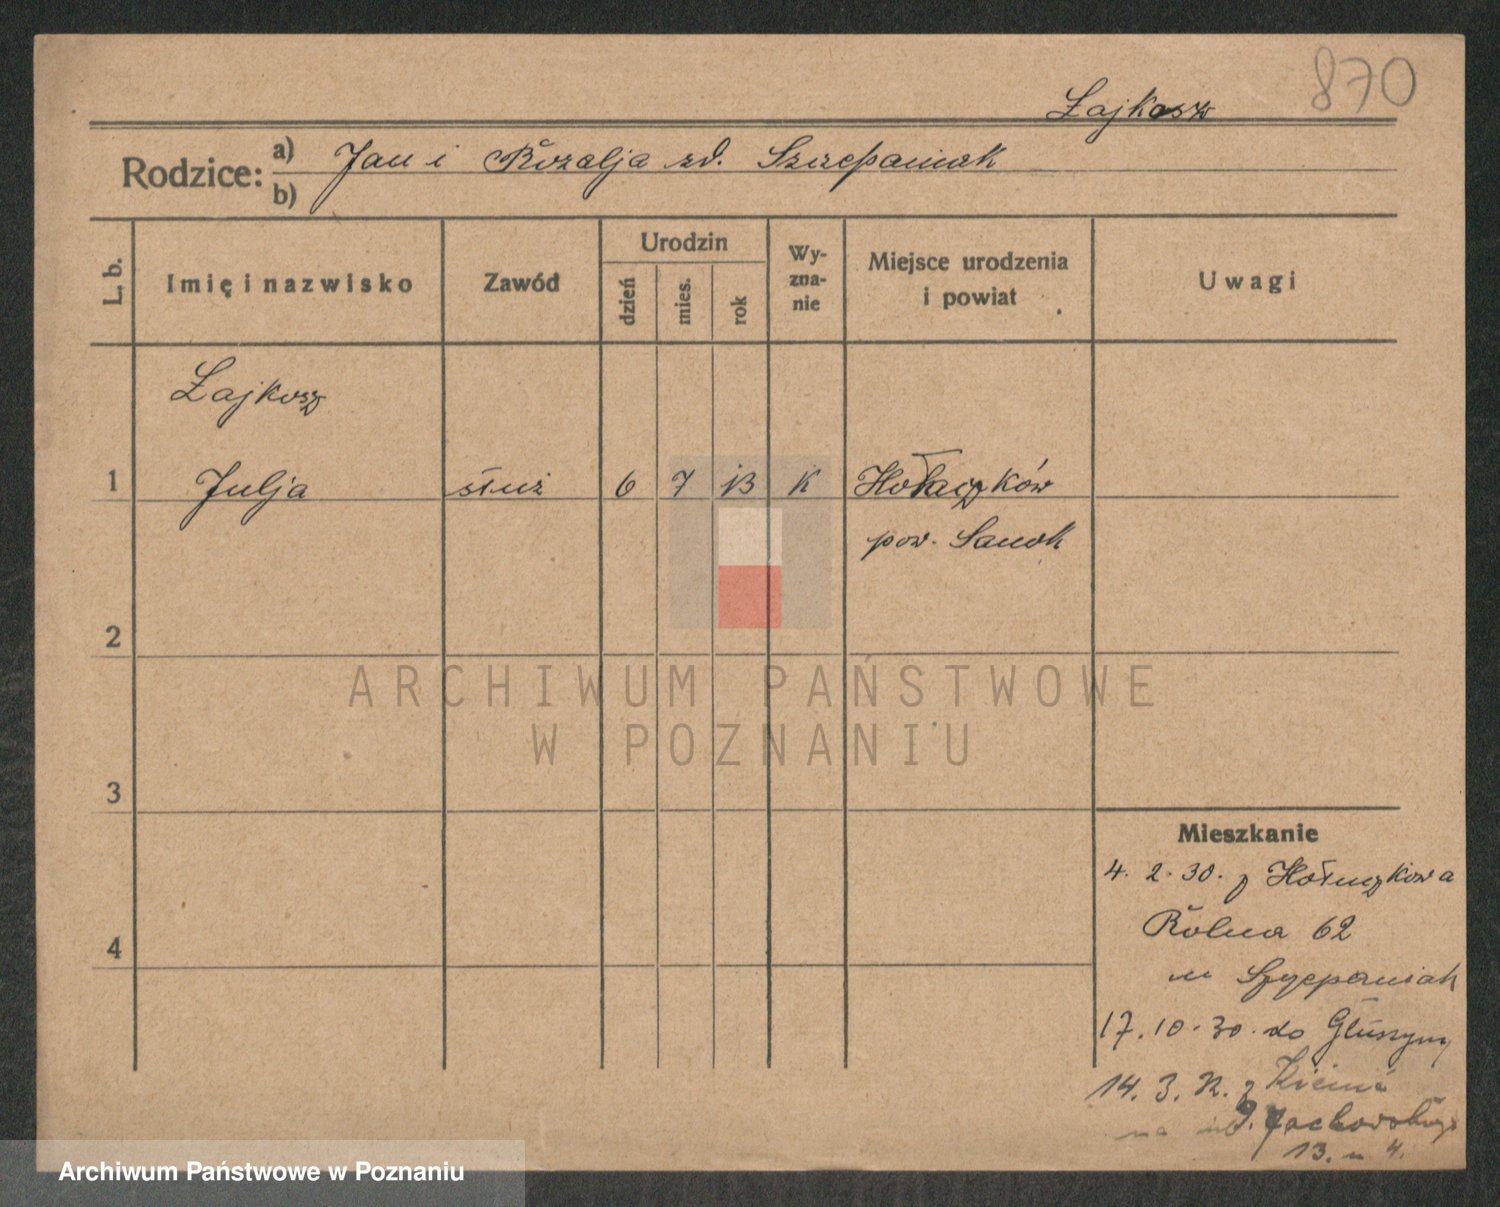 870
Łajkosz
Rodzice: a) Jan i Rozalja zd. Szczepaniak
b)
L. b.
Imię i nazwisko
Zawód
Urodzin
dzień
mies.
rok
Wy-
zna-
nie
Miejsce urodzenia
i powiat
Uwagi
Łajkosz
1 Julja służ 6 7 13 K
pow. Sanok
2
ARCHIWUM PAŃSTWOWE
W POZNANIU
3
4
Mieszkanie
4. 2. 30. z Hołuczkowa
Rolna 62
u Szczepaniak
17. 10. 30. do Głuszyny
14. 3. 32. z
13. m 4.
Archiwum Państwowe w Poznaniu